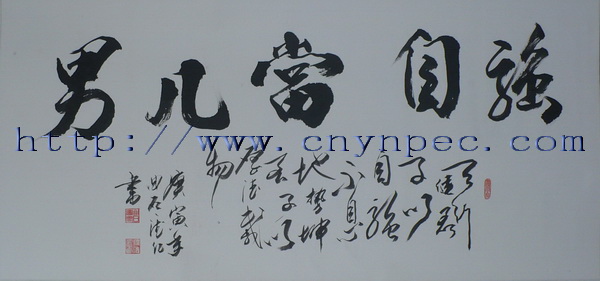 男儿當自強
http://www.cnynpec.com
天行
健君
子以
自強
不息
地勢坤
君子以
厚德載
物
庚寅年
書